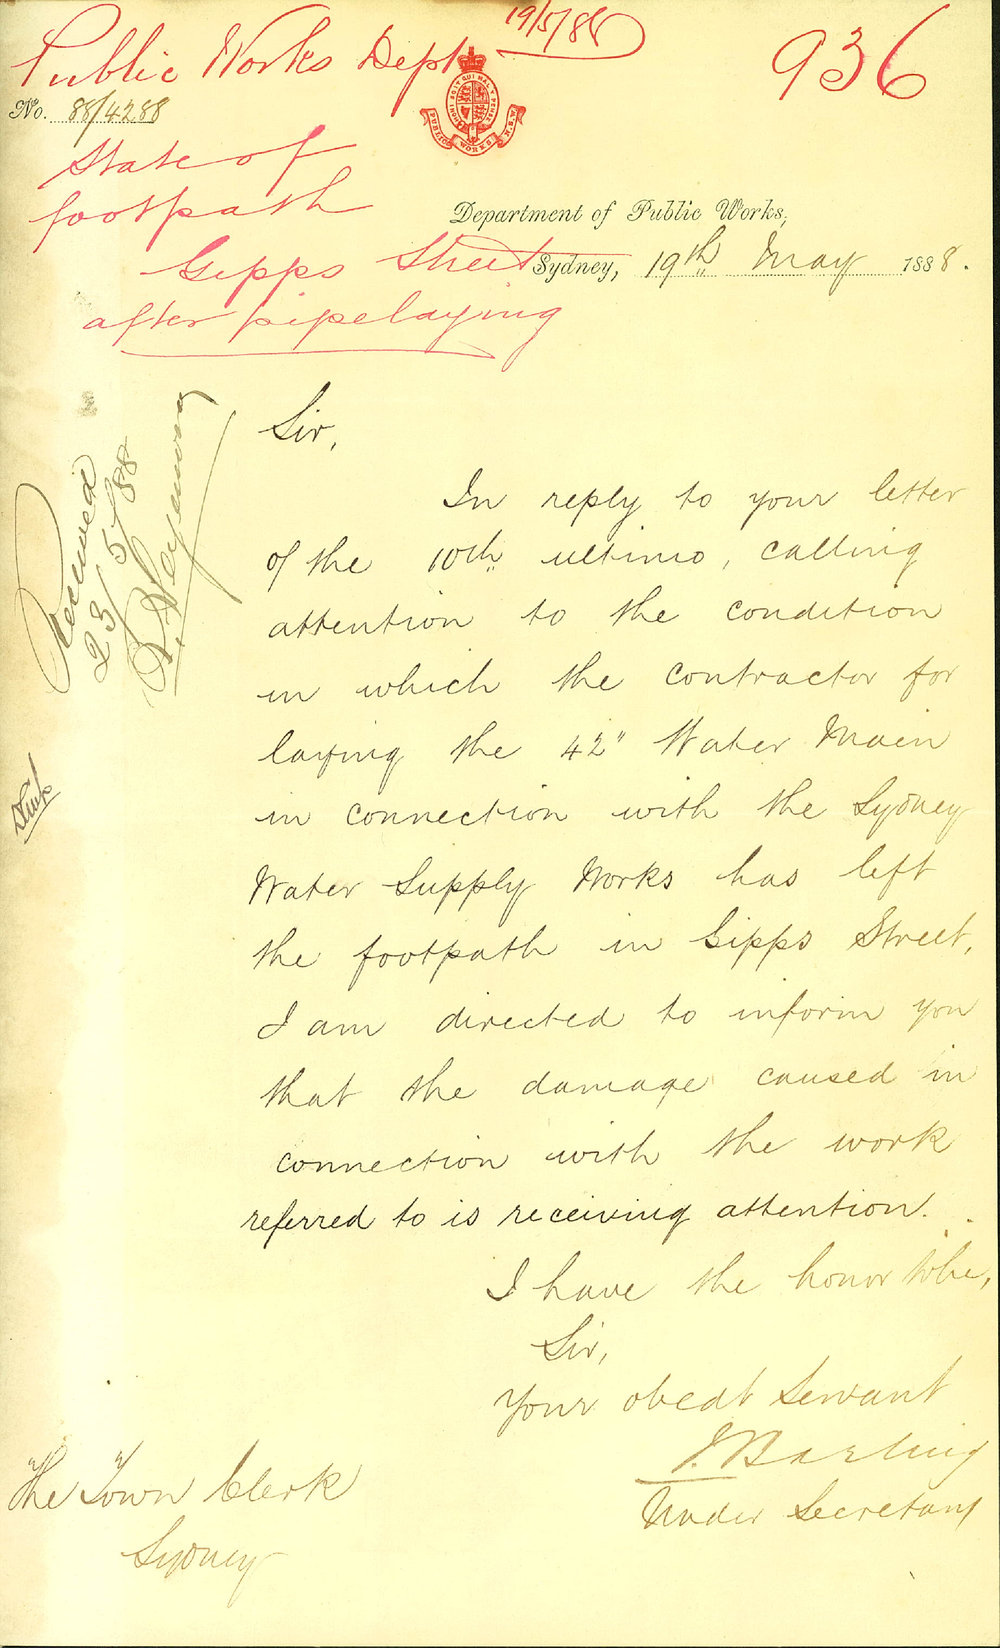 Public Works Dept 19/5/88
936
No. 88/4288
State of
footpath
Gipps Street
after pipelaying
HONI SOIT QUI MAL Y PENSE
PUBLIC WORKS N.S.W.
Department of Public Works,
Sydney, 19th May 1888.
Received
23/5/88
Sir,
In reply to your letter
of the 10th ultimo, calling
attention to the condition
in which the contractor for
laying the 42" Water Main
in connection with the Sydney
Water Supply Works has left
the footpath in Gipps Street,
I am directed to inform you
that the damage caused in
connection with the work
referred to is receiving attention.
I have the honor to be,
Sir,
Your obedt Servant
J. Barling
Under Secretary
The Town Clerk
Sydney